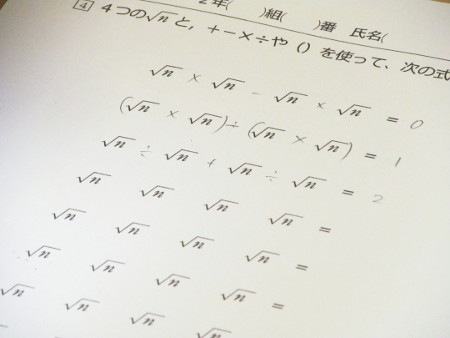 2年( )組( )番 氏名(
4 4つの√nと，＋−×÷や（）を使って、次の式
√n × √n − √n × √n = 0
(√n × √n) ÷ (√n × √n) = 1
√n ÷ √n + √n ÷ √n = 2
√n √n √n √n =
√n √n √n √n =
√n √n √n √n =
√n √n √n √n